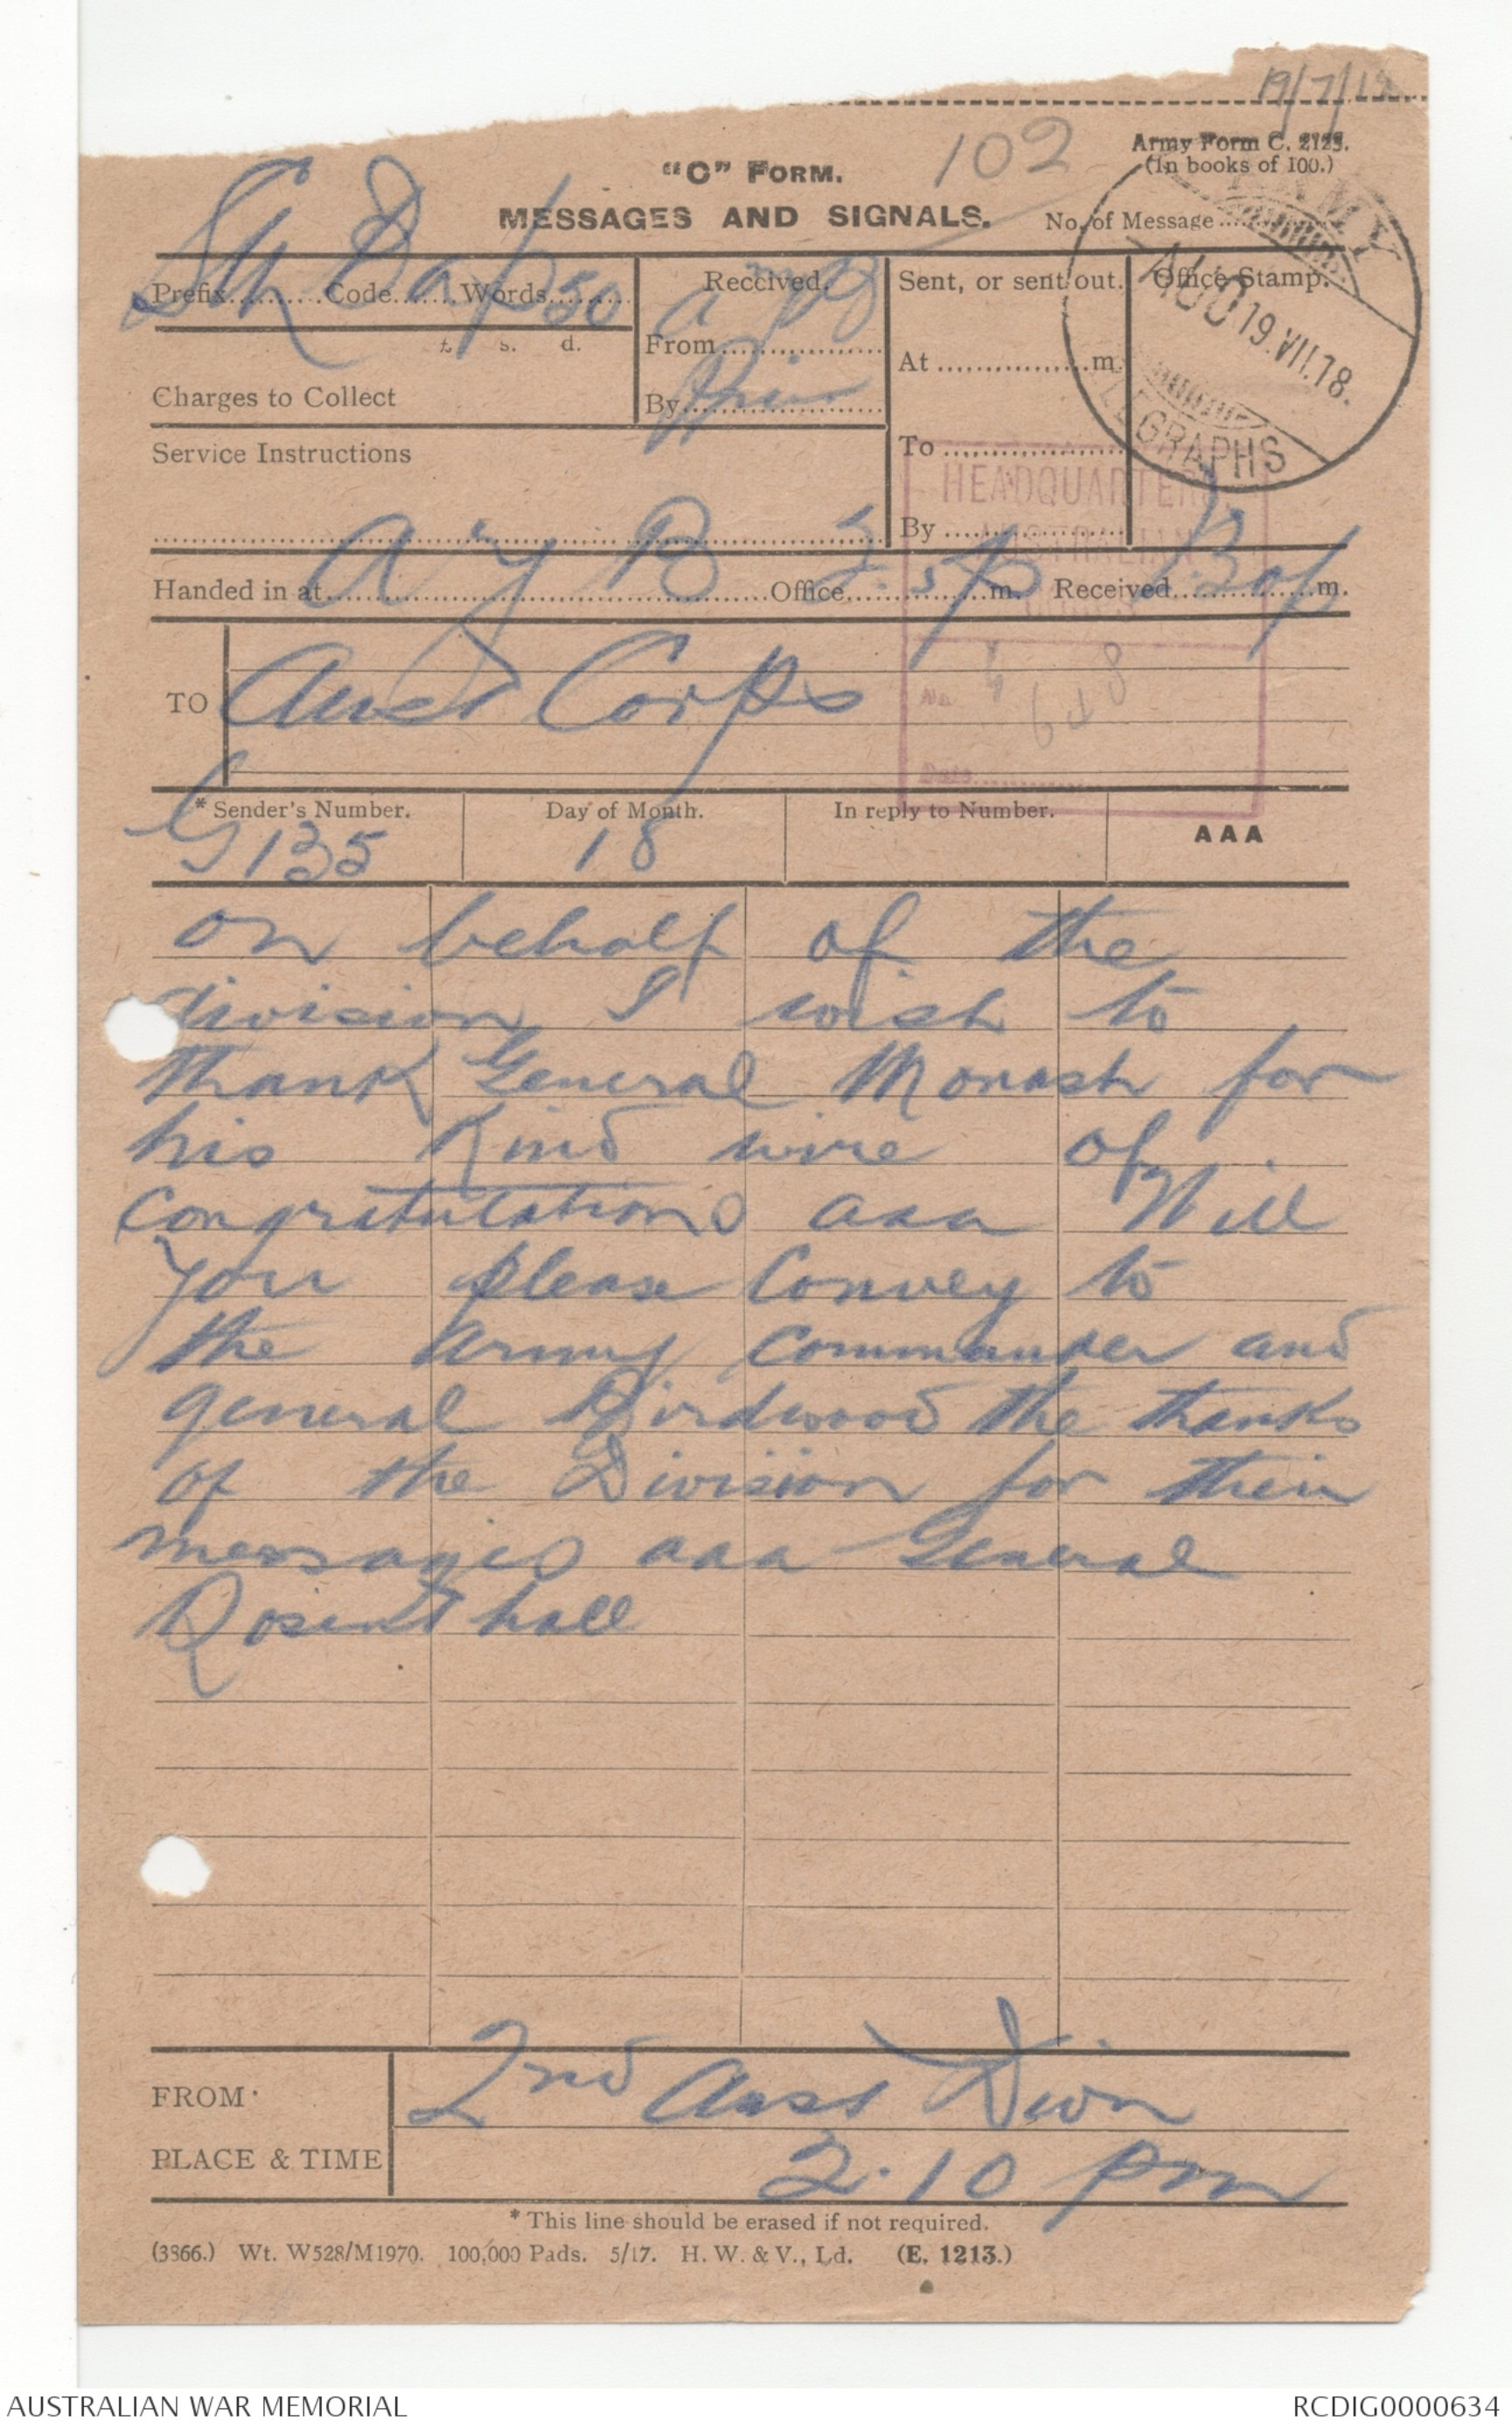 19/7/18
102
Army Form C. 2123.
(In books of 100.)
"C" FORM.
MESSAGES AND SIGNALS.
No. of Message
Prefix Code Words 50
Received.
Sent, or sent out.
Office Stamp.
£ s. d.
From
At m.
Charges to Collect
By
Service Instructions
To
By
ARMY
19.VII.18.
TELEGRAPHS
HEADQUARTERS
AUSTRALIAN
CORPS
Handed in at AYB Office m. Received m.
TO Aust Corps
No.
Date
* Sender's Number. Day of Month. In reply to Number. AAA
G135 18
on behalf of the
division I wish to
thank General Monash for
his kind wire of
congratulations aaa Will
you please convey to
the army commander and
general Birdwood the thanks
of the Division for their
messages aaa General
Rosenthall
FROM 2nd Aust Divn
PLACE & TIME 2.10 pm
* This line should be erased if not required.
(3866.) Wt. W528/M1970. 100,000 Pads. 5/17. H. W. & V., Ld. (E. 1213.)
AUSTRALIAN WAR MEMORIAL RCDIG0000634